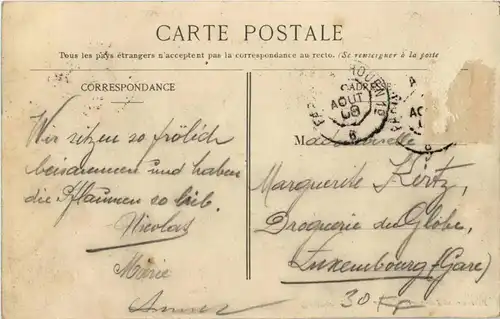 CARTE POSTALE
Tous les pays étrangers n'acceptent pas la correspondance au recto. (Se renseigner à la poste
CORRESPONDANCE
ADRE
AOUT
08
Wir sitzen so frölich
beisammen und haben
die Pflaumen so lieb.
Nicolas
Marie
Mademoiselle
Marguerite Kertz,
Droguerie du Globe,
Luxembourg (Gare)